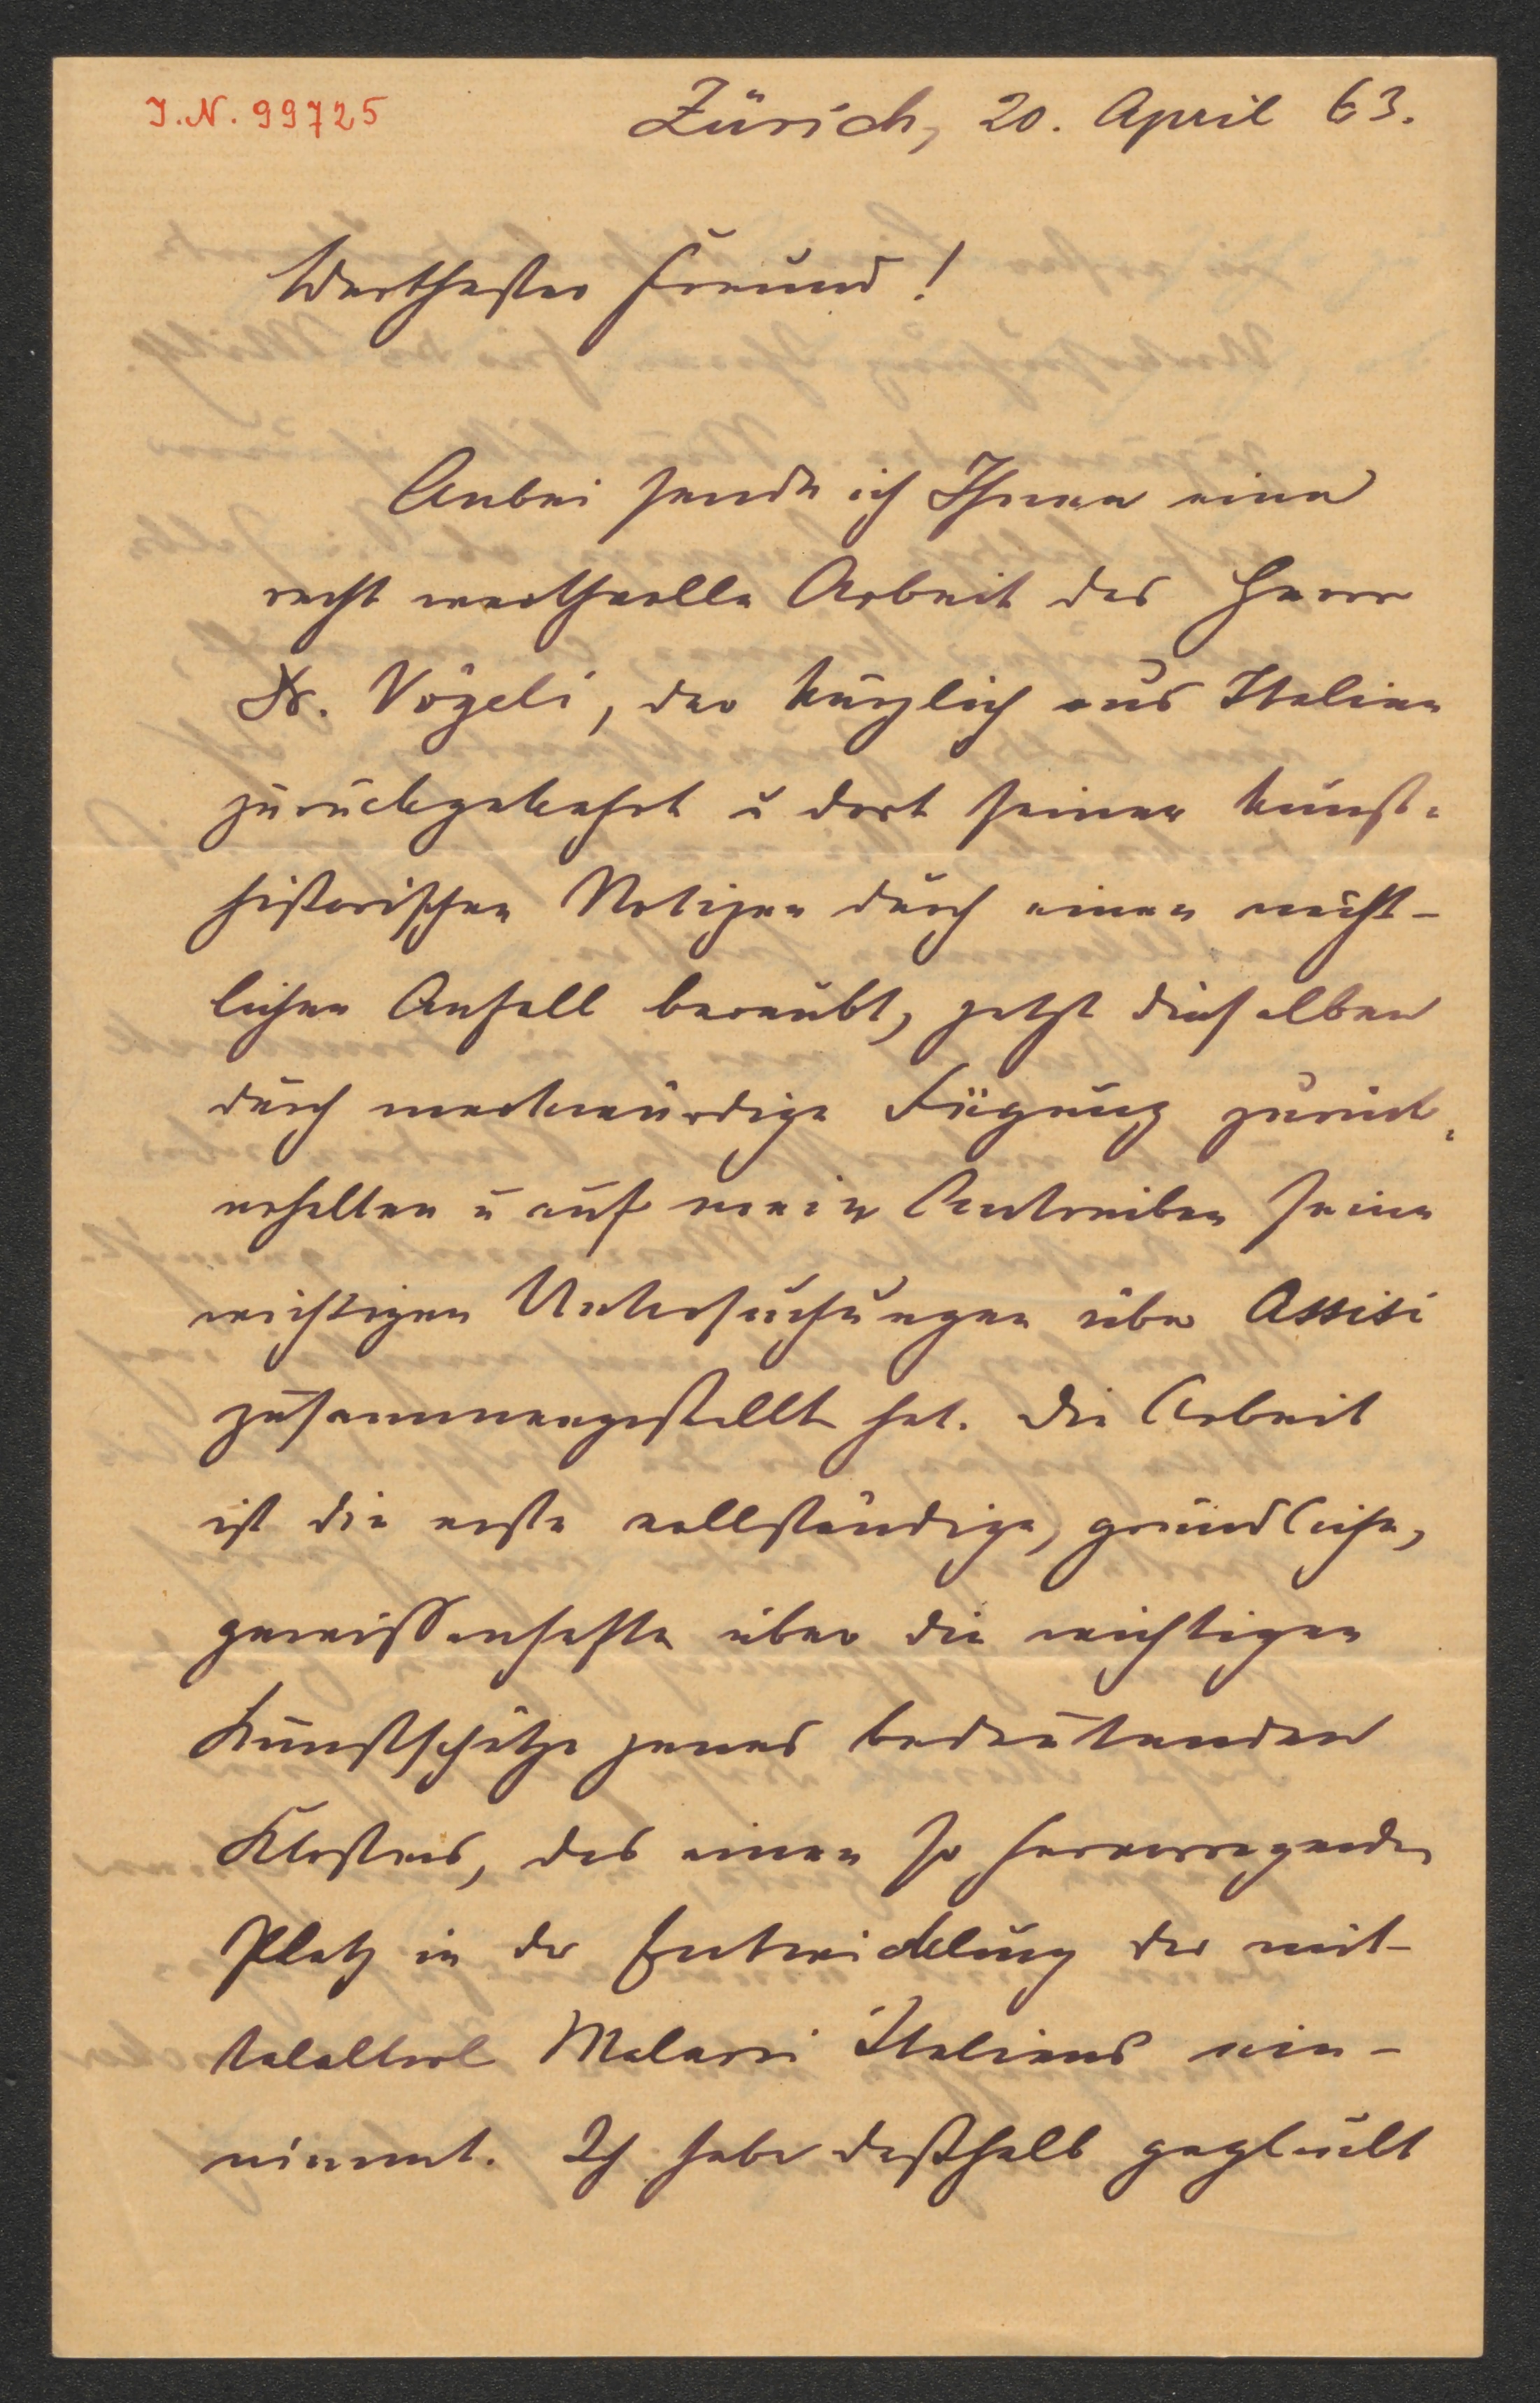 J.N. 99725
Zürich, 20. April 63.
Werthester Freund!
Anbei sende ich Ihnen eine
recht werthvolle Arbeit des Herrn
Dr. Vögeli, der kürzlich aus Italien
zurückgekehrt u dort seiner kunst-
historischen Notizen durch einen nächt-
lichen Anfall beraubt, jetzt dieselben
durch merkwürdige Fügung zurück-
erhalten u auf mein Antreiben seine
wichtigen Untersuchungen über Assisi
zusammengestellt hat. Die Arbeit
ist die erste vollständige, gründliche,
gewissenhafte über die wichtigen
Kunstschätze jenes bedeutenden
Klosters, das einen so hervorragenden
Platz in der Entwicklung der mit-
telalterl Malerei Italiens ein-
nimmt. Ich habe deßhalb geglaubt